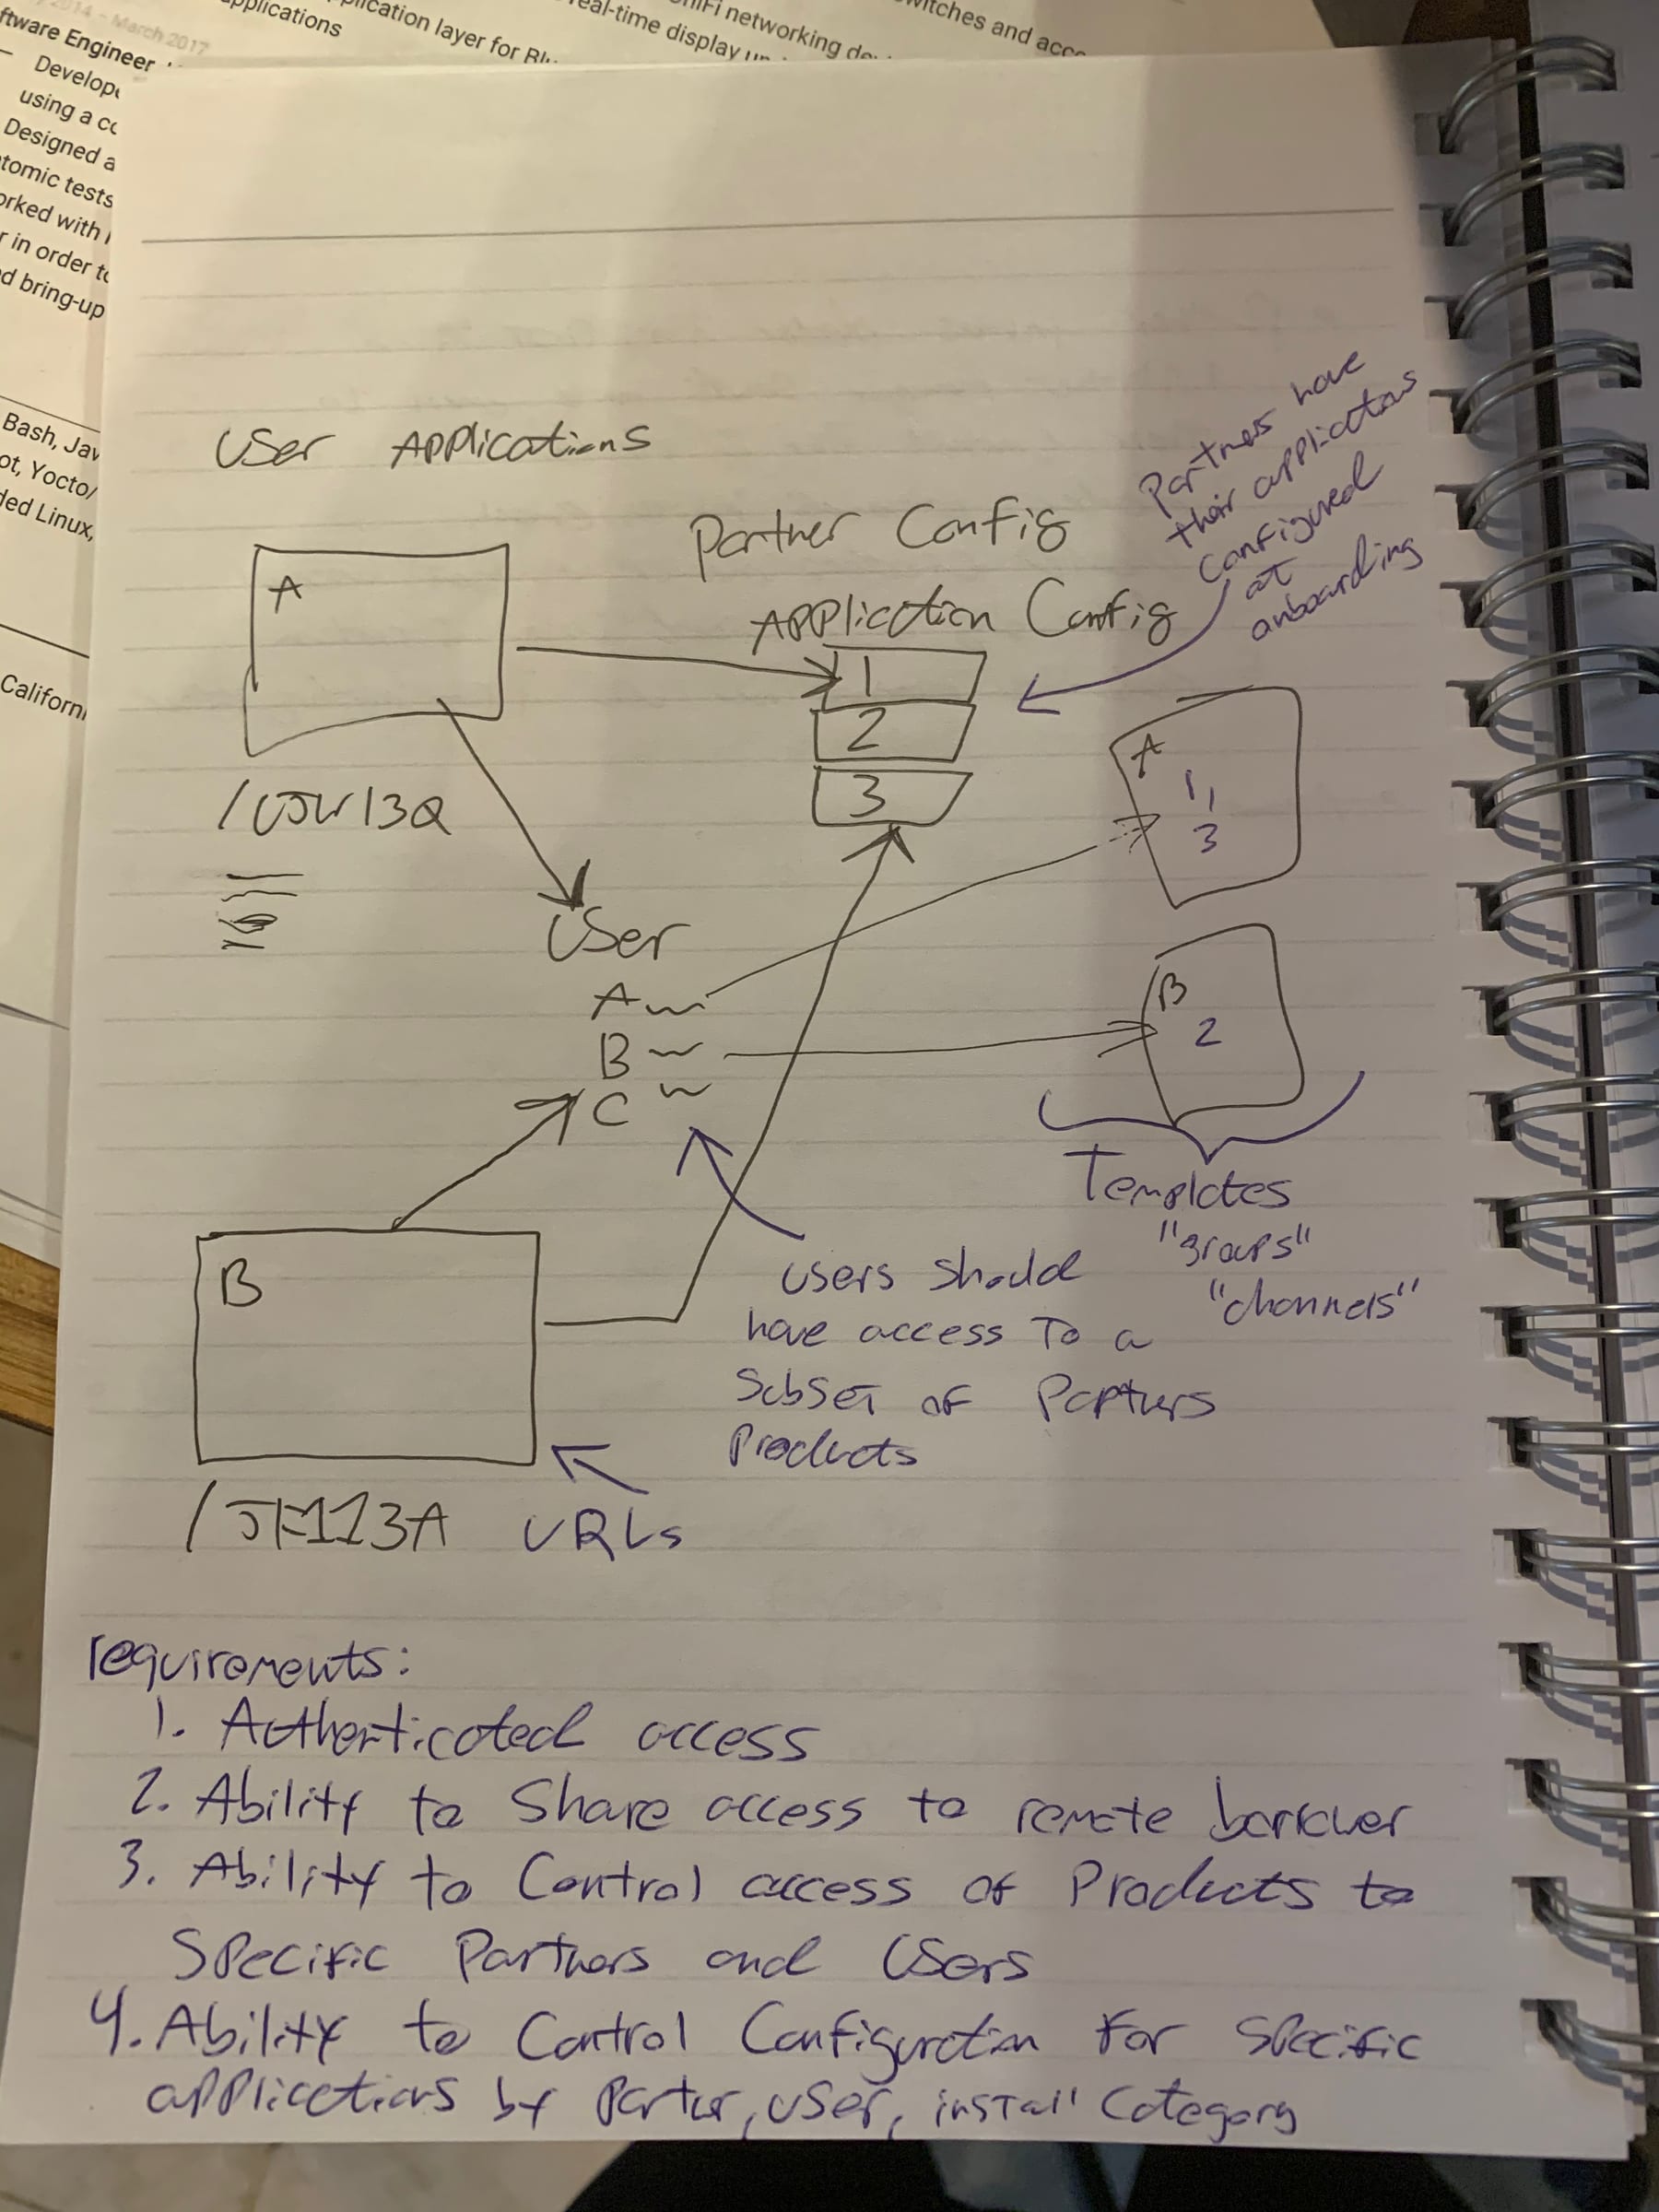 2014 – March 2017
ftware Engineer
Develope
using a co
Designed a
tomic tests
orked with
r in order to
d bring-up
Bash, Jav
ot, Yocto/
ded Linux,
Californi
applications
plication layer for Blu
real-time display up
UniFi networking de
witches and acce
User Applications
Partner Config
Application Config
Partners have
their applications
configured
at
onboarding
A
1
2
3
A
1,
3
User
A
B
C
B
2
Templates
"groups"
"channels"
B
Users should
have access to a
subset of Partners
Products
URLs
requirements:
1. Authenticated access
2. Ability to Share access to remote
3. Ability to Control access of Products to
Specific Partners and Users
4. Ability to Control Configuration for specific
applications by partner, user, install category